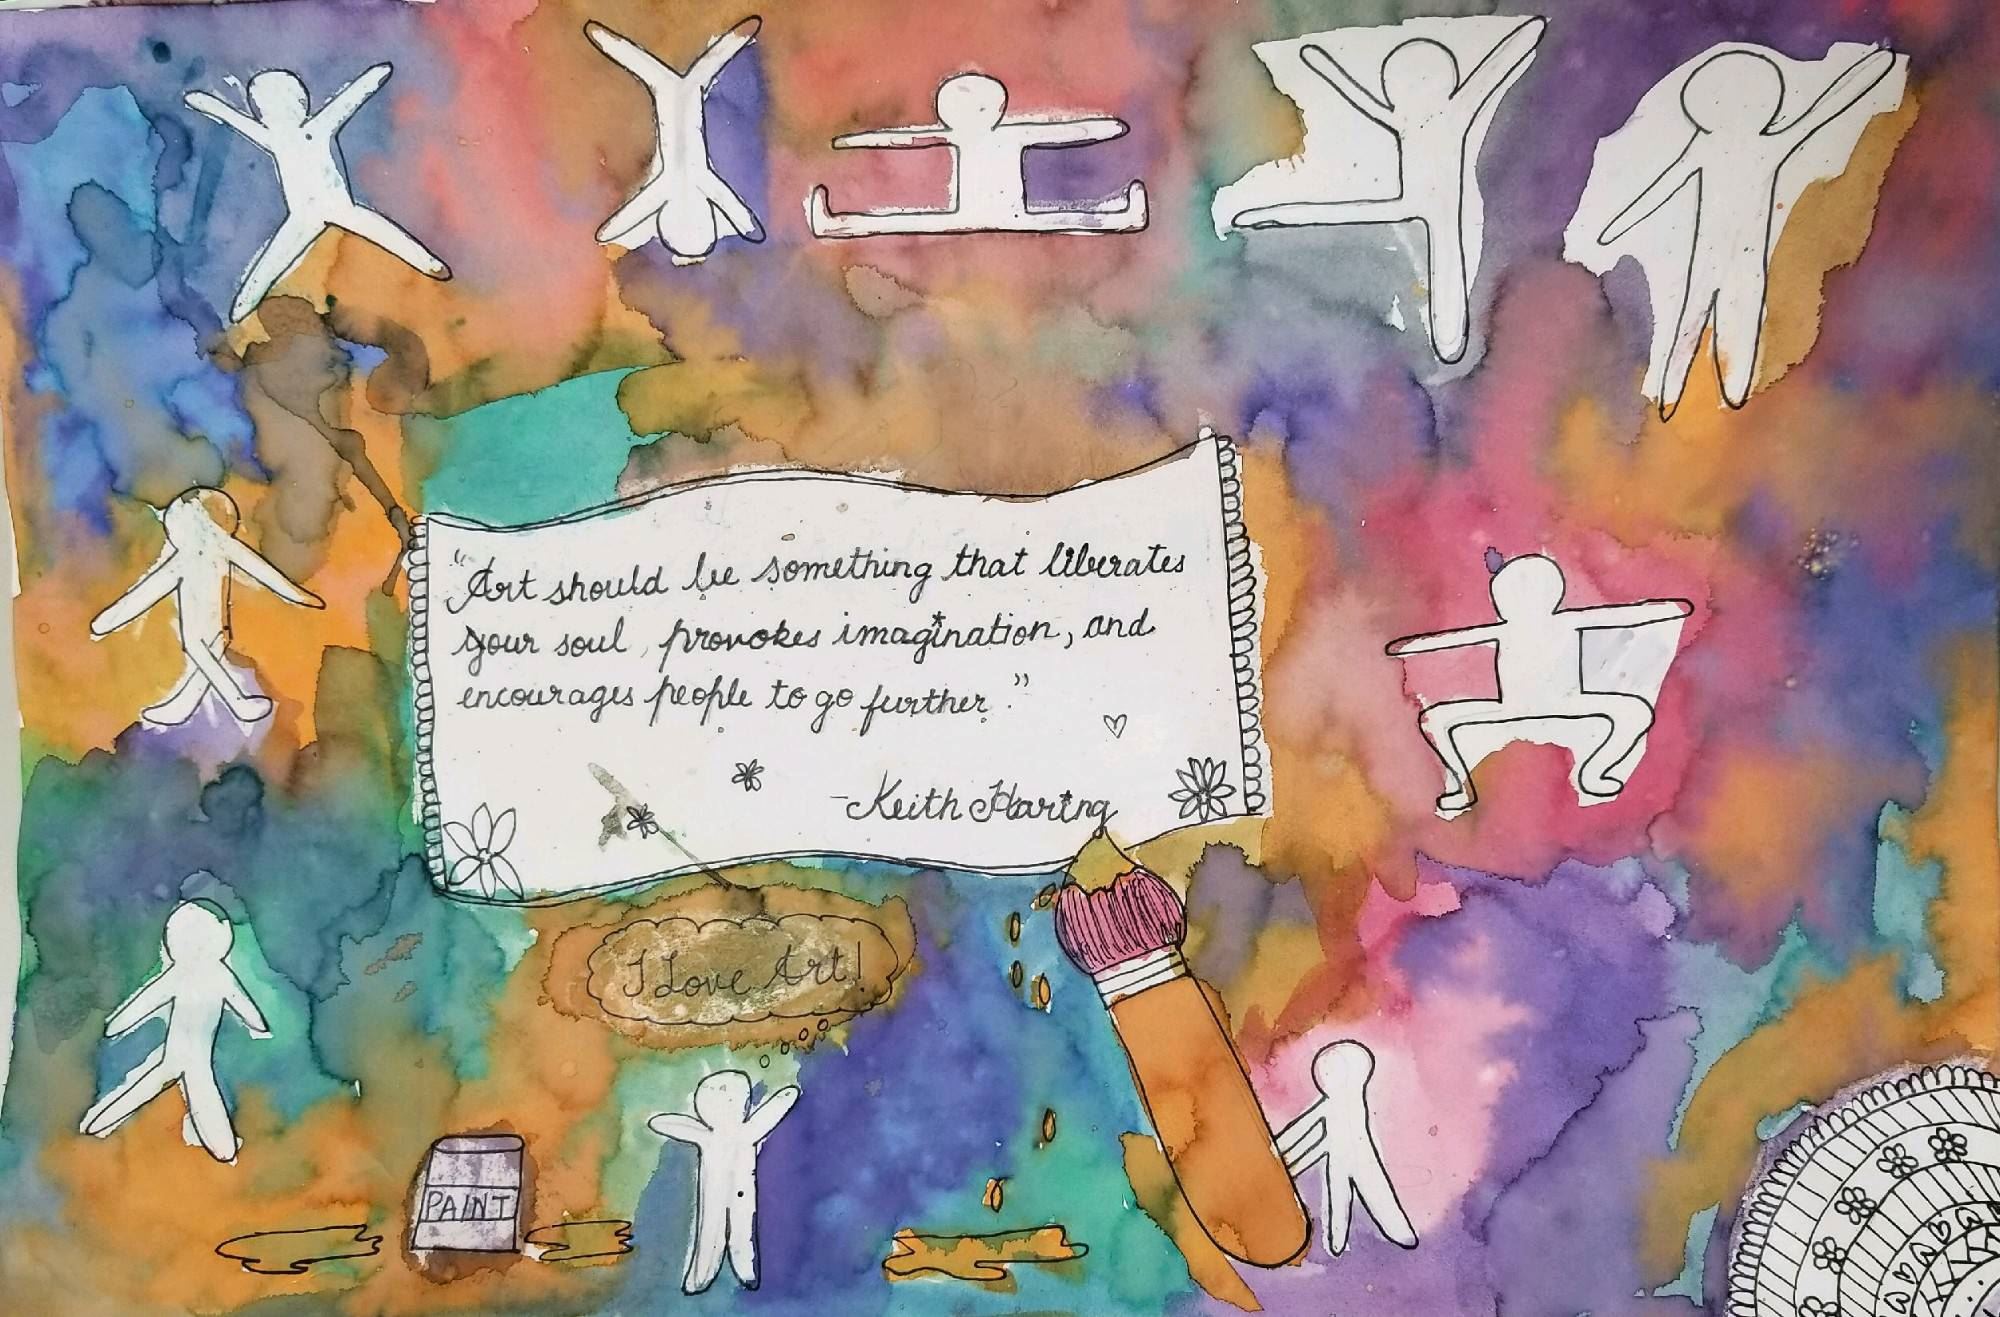 "Art should be something that liberates
your soul, provokes imagination, and
encourages people to go further."
-Keith Haring
I Love Art!
PAINT